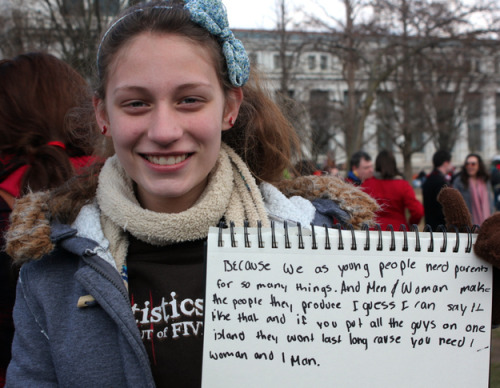 tistics
UT OF FIV
BECAUSE We as young people nerd parents
for so many things. And Men / Woman make
the people they produce I guess I can say it
like that and if you put all the guys on one
island they wont last long cause you need 1
woman and 1 Man.